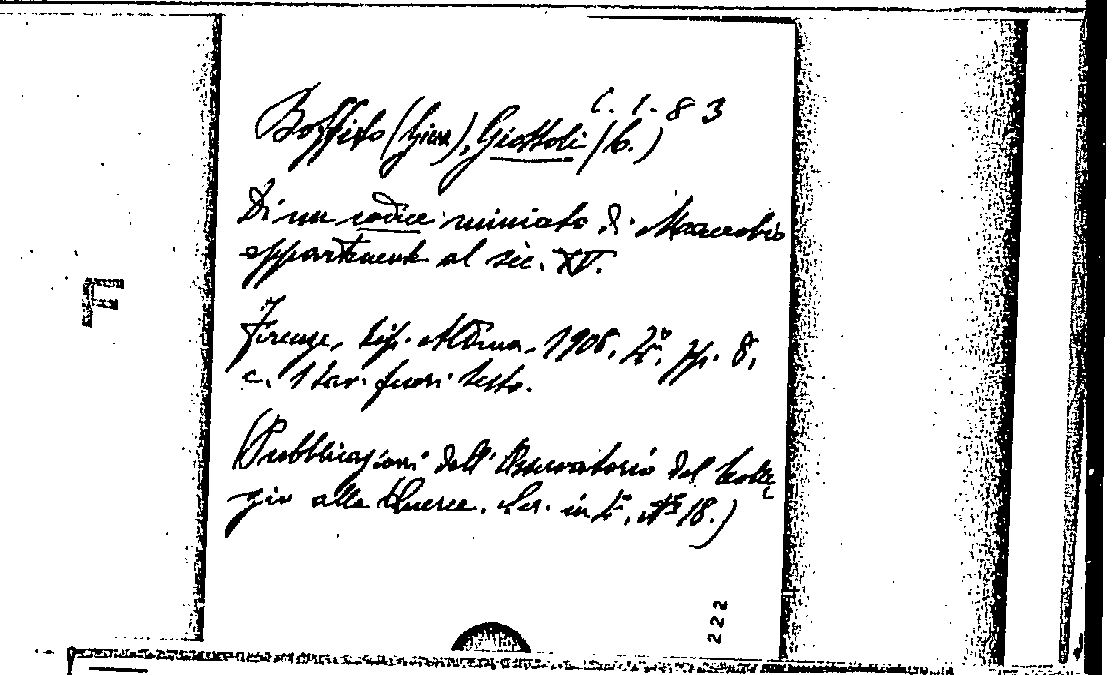 C. 1. 83
Boffito (Gius), Giottoli (G.)
Di un codice miniato di Macrobio
appartenente al sec. XV.
Firenze, tip. Aldina, 1908, 4º, pp. 8,
c. 1 tav. fuori testo.
(Pubblicazioni dell'Osservatorio del Colle
gio alla Querce. Ser. in 4º, Nº 18.)
F
222